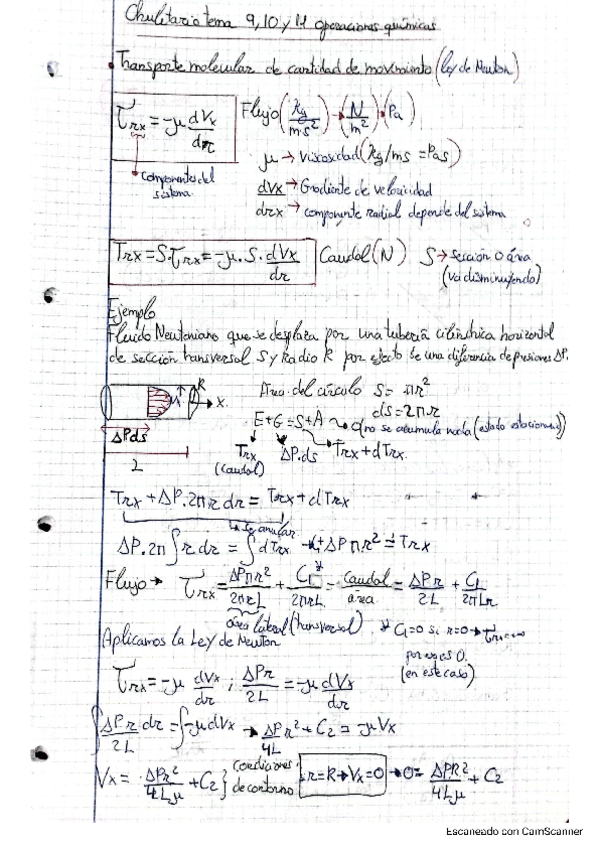 Chuletario tema 9, 10 y 11 operaciones químicas
• Transporte molecular de cantidad de movimiento (ley de Newton)
τrx = -μ dVx/dr Flujo (kg/m·s²) → (N/m²) → (Pa)
Componente del sistema
μ → viscosidad (kg/ms = Pas)
dVx → Gradiente de velocidad
drx → componente radial depende del sistema
Trx = S·τrx = -μ·S·dVx/dr Caudal (N) S → sección o área
(va disminuyendo)
Ejemplo
Fluido Newtoniano que se desplaza por una tubería cilíndrica horizontal
de sección transversal S y Radio R por efecto de una diferencia de presiones ΔP.
R x
Area del círculo S = πr²
ds = 2πr
ΔPds
L
E+G = S+A → 0 (no se acumula nada (estado estacionario))
Trx (caudal) ΔP.ds Trx + dTrx
Trx + ΔP·2πr dr = Trx + dTrx
se anulan
ΔP·2π ∫ r dr = ∫ dTrx → C1 + ΔP πr² = Trx
Flujo → τrx = ΔPπr²/2πrL + C1/2πrL = caudal/área = ΔPr/2L + C1/2πLr
área lateral (transversal)
* C1=0 si r=0 → τrx=∞
por eso es 0.
(en este caso)
Aplicamos la Ley de Newton
τrx = -μ dVx/dr ; ΔPr/2L = -μ dVx/dr
∫ ΔPr/2L dr = ∫ -μ dVx → ΔPr²/4L + C2 = -μVx
Vx = ΔPr²/4Lμ + C2 } condiciones de contorno r=R → Vx=0 → 0 = ΔPR²/4Lμ + C2
Escaneado con CamScanner